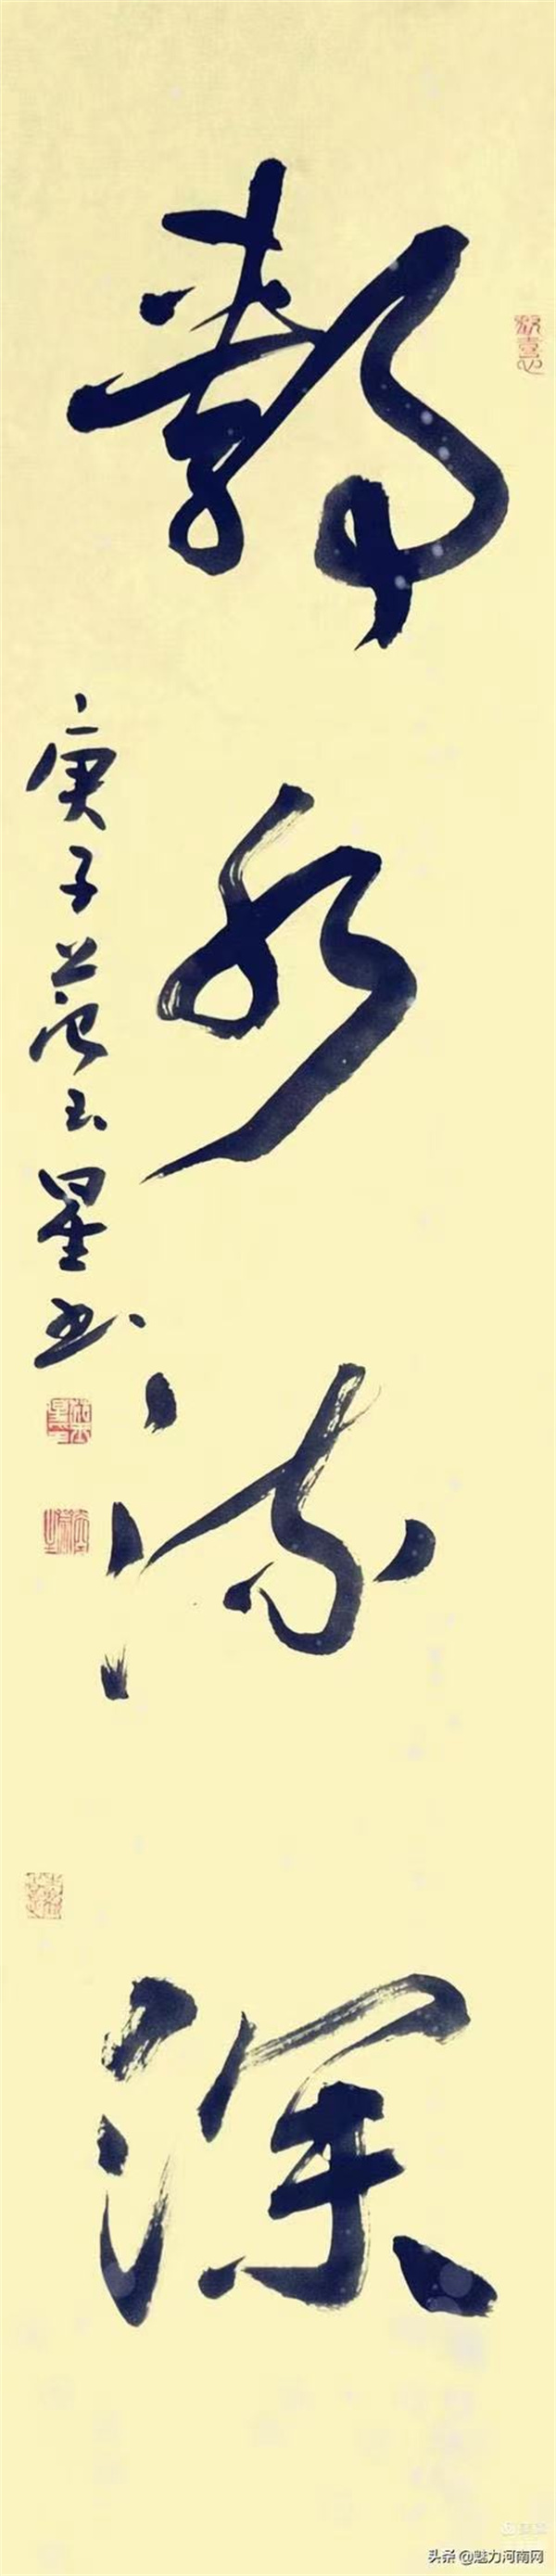 静水流深
庚子范玉星书
头条 @魅力河南网